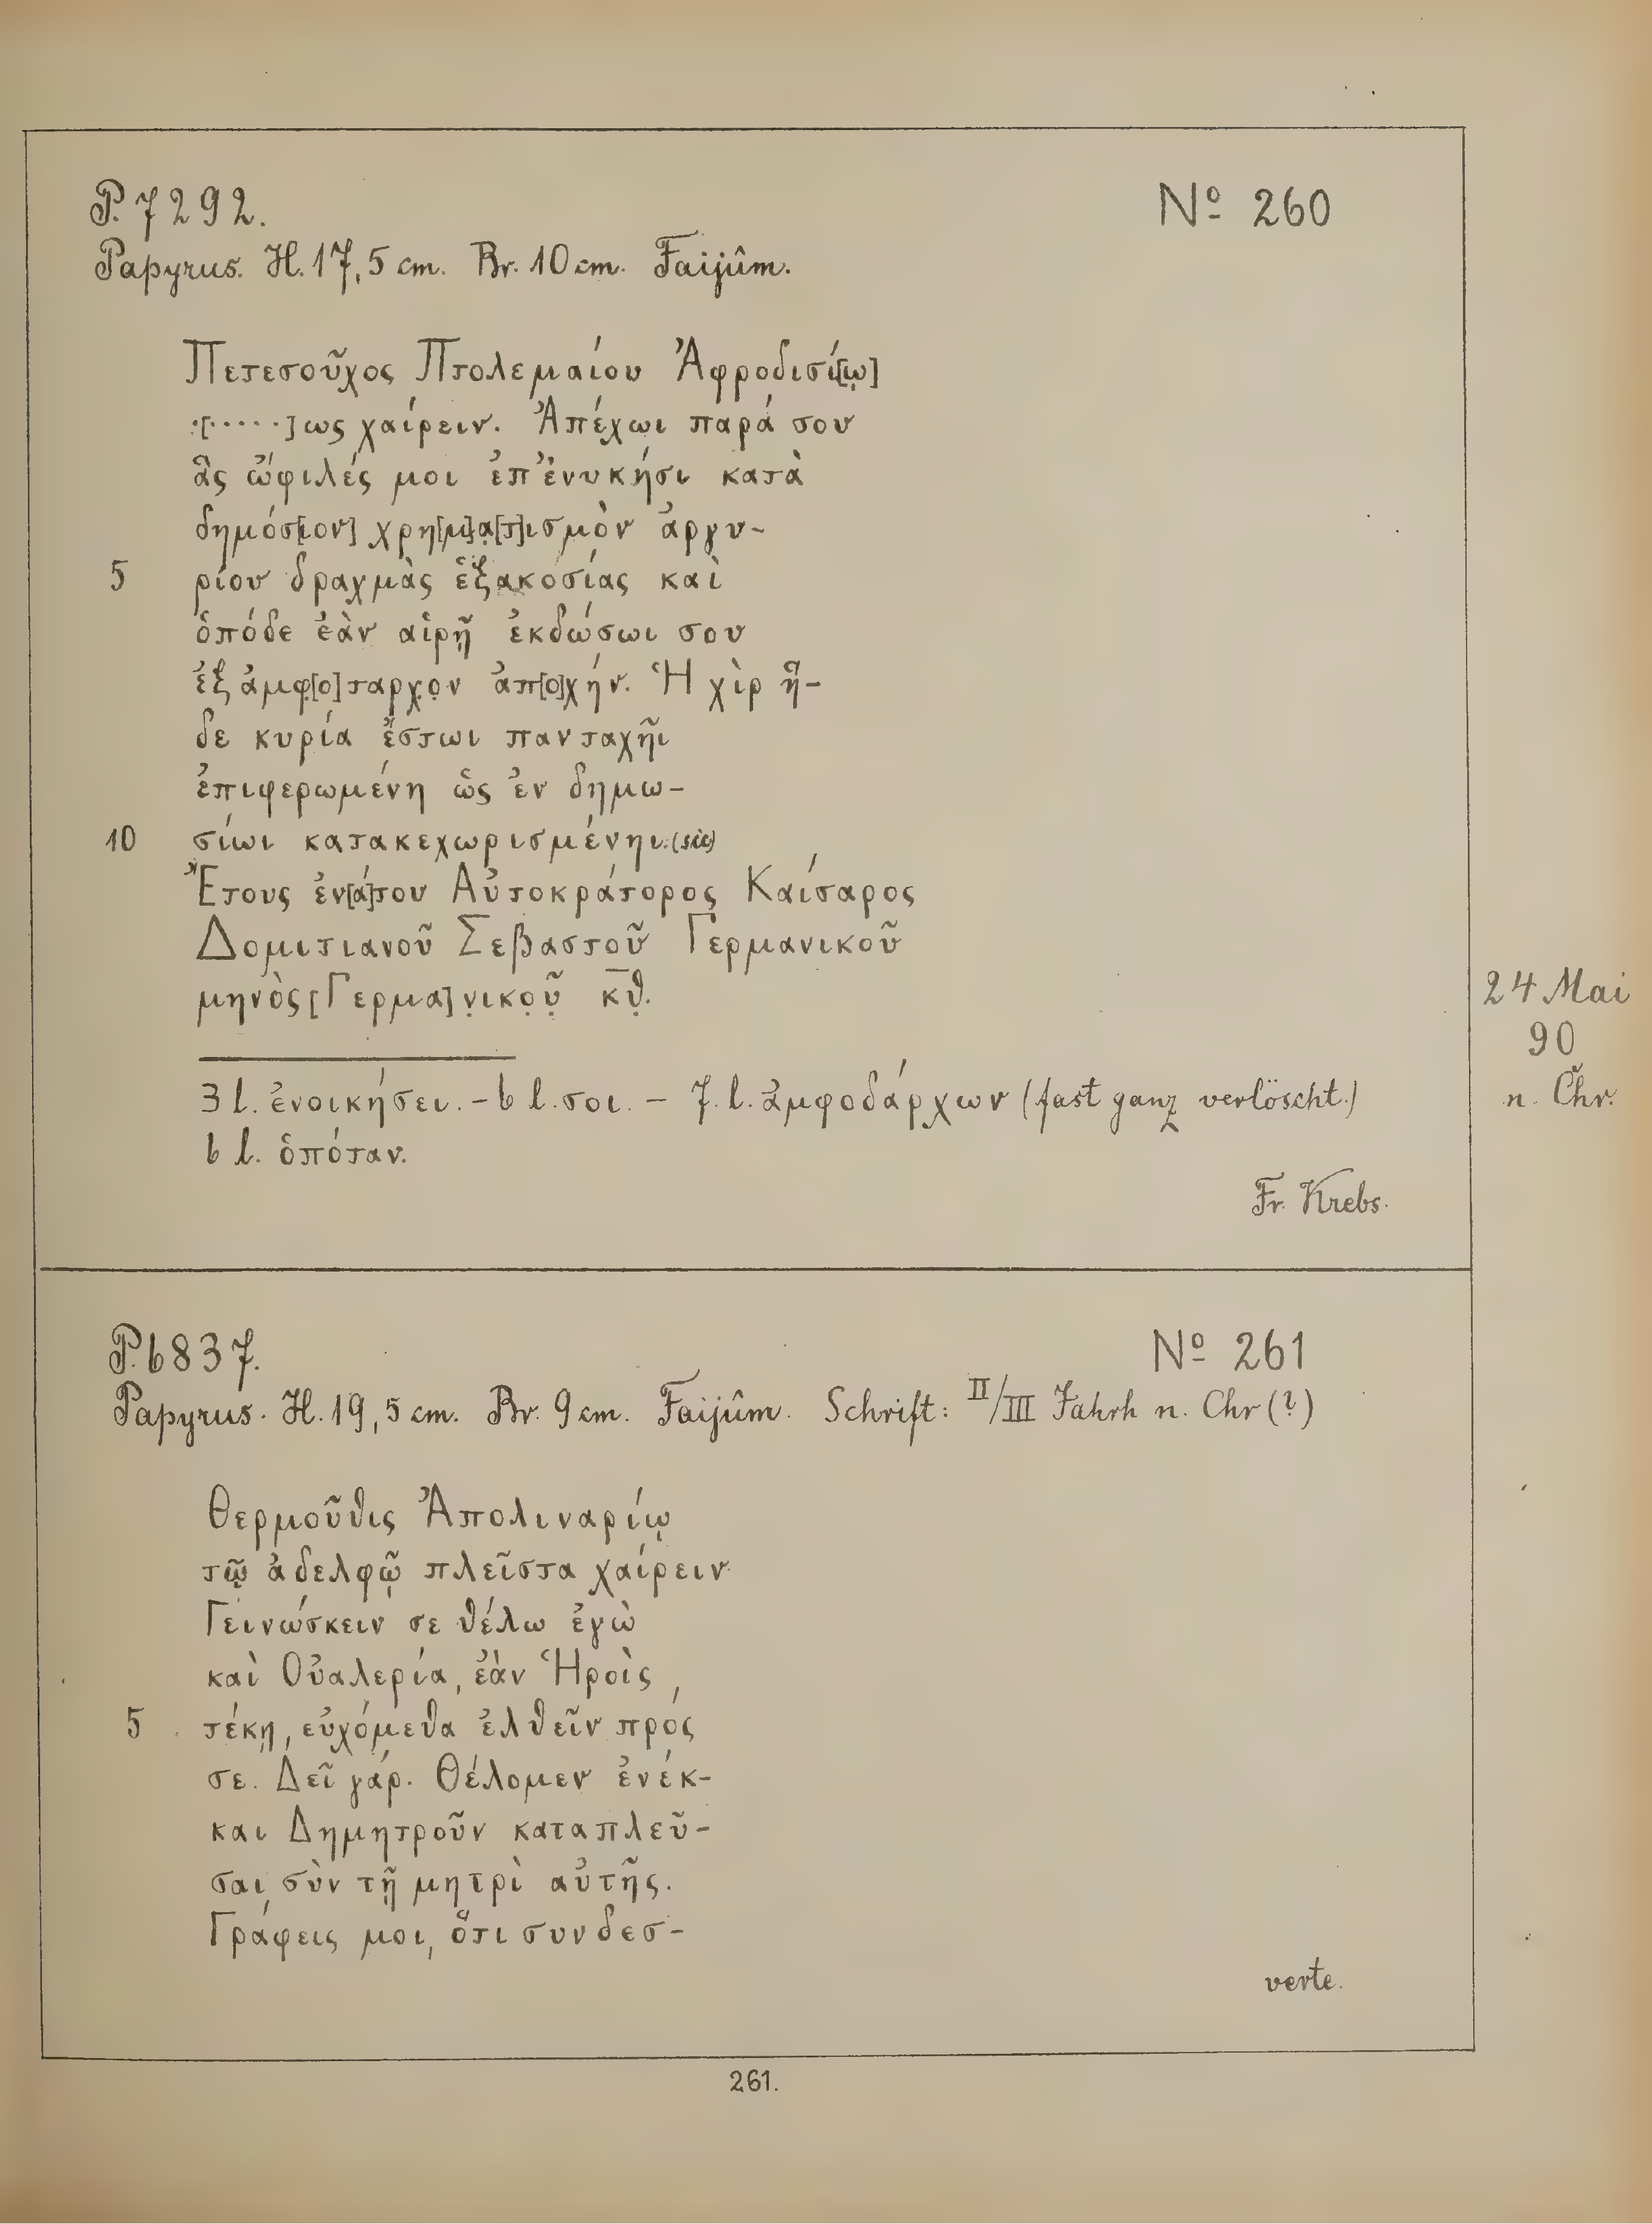 P. 7292.
Nº 260
Papyrus. H. 17,5 cm. Br. 10 cm. Faijûm.
Πετεσοῦχος Πτολεμαίου Ἀφροδισί[ῳ]
.[.....]ως χαίρειν. Ἀπέχωι παρά σου
ἃς ὤφιλές μοι ἐπ' ἐνυκήσι κατὰ
δημόσ[ιον] χρη[μ]α[τ]ισμὸν ἀργυ-
5 ρίου δραχμὰς ἑξακοσίας καὶ
ὁπόδε ἐὰν αἱρῇ ἐκδώσωι σου
ἐξ ἀμφ[ο]ταρχον ἀπ[ο]χήν. Ἡ χὶρ ἥ-
δε κυρία ἔστωι πανταχῆι
ἐπιφερωμένη ὡς ἐν δημω-
10 σίωι κατακεχωρισμένηι. (sic)
Ἔτους ἐν[ά]του Αὐτοκράτορος Καίσαρος
Δομιτιανοῦ Σεβαστοῦ Γερμανικοῦ
μηνὸς [Γερμα]νικοῦ κθ.
24 Mai
90
n. Chr.
3 l. ἐνοικήσει. – 6 l. σοι. – 7. l. ἀμφοδάρχων (fast ganz verlöscht.)
6 l. ὁπόταν.
Fr. Krebs.
P. 6837.
Nº 261
Papyrus. H. 19,5 cm. Br. 9 cm. Faijûm. Schrift: II/III Jahrh n. Chr (?)
Θερμοῦθις Ἀπολιναρίῳ
τῷ ἀδελφῷ πλεῖστα χαίρειν.
Γεινώσκειν σε θέλω ἐγὼ
καὶ Οὐαλερία, ἐὰν Ἡροὶς
5 τέκῃ, εὐχόμεθα ἐλθεῖν πρός
σε. Δεῖ γάρ. Θέλομεν ἐνέκ-
και Δημητροῦν καταπλεῦ-
σαι σὺν τῇ μητρὶ αὐτῆς.
Γράφεις μοι, ὅτι συνδεσ-
verte.
261.